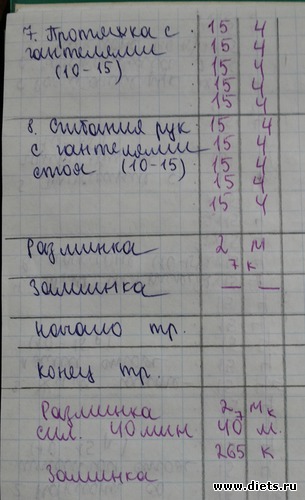 7. Протяжка с 15 4
гантелями 15 4
(10-15) 15 4
15 4
15 4
8. Сгибания рук 15 4
с гантелями 15 4
стоя (10-15) 15 4
15 4
15 4
Разминка 2 м
7 к
Заминка — —
Начало тр.
Конец тр.
Разминка 2 м
7 к
сил. 40 мин 40 м.
265 к
Заминка
© www.diets.ru